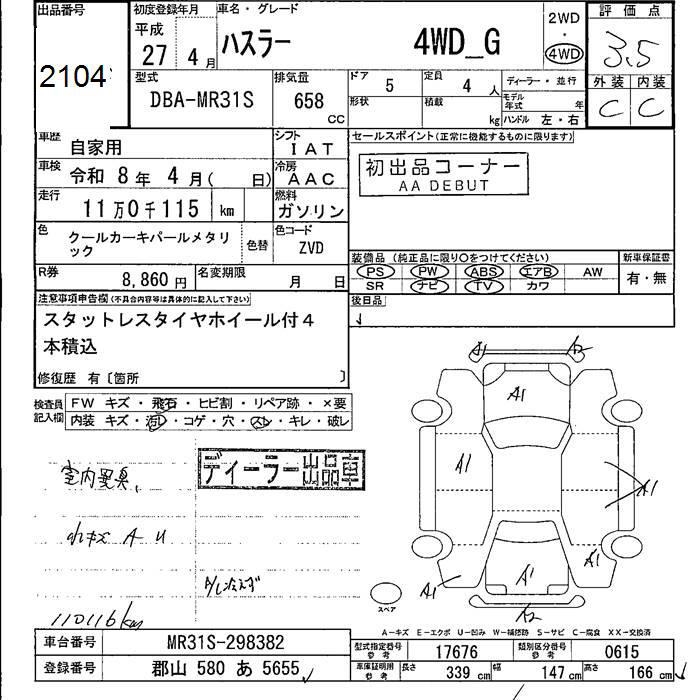 出品番号
2104
初度登録年月
平成
27 4月
車名・グレード
ハスラー 4WD_G
2WD
・
4WD
評価点
3.5
外装 内装
C C
型式
DBA-MR31S
排気量
658
CC
ドア 5
定員 4人
形状
積載 kg
ディーラー・並行
モデル年式 年
ハンドル 左・右
車歴 自家用
シフト IAT
車検 令和 8年 4月( 日)
冷房 AAC
走行 11万0千115 km
燃料 ガソリン
色 クールカーキパールメタリック
色替
色コード ZVD
R券 8,860円
名変期限 月 日
セールスポイント(正常に機能するものに限ります)
初出品コーナー
AA DEBUT
装備品(純正品に限り○をつけてください)
新車保証書
PS PW ABS エアB AW
SR ナビ TV カワ
有・無
後日品
注意事項申告欄(不具合内容等は具体的に記入して下さい)
スタットレスタイヤホイール付4
本積込
修復歴 有〔箇所 〕
検査員記入欄
FW キズ・飛石・ヒビ割・リペア跡・×要
内装 キズ・汚レ・コゲ・穴・スレ・キレ・破レ
ディーラー出品車
室内異臭、
小キズ A U
110116km
A1 A2
A1
A1
A1
A1
A1
A1
A2
スペア
A-キズ E-エクボ U-凹み W-補修跡 S-サビ C-腐食 XX-交換済
車台番号 MR31S-298382
登録番号 郡山 580 あ 5655
型式指定番号 参考 17676
類別区分番号 参考 0615
車庫証明用 参考 長さ 339 cm 幅 147 cm 高さ 166 cm